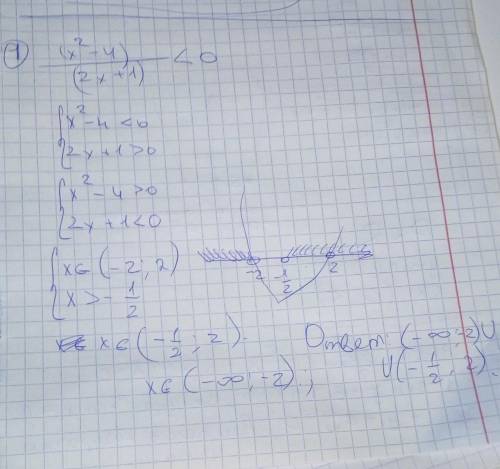 1) (x² - 4) / (2x + 1) < 0
{ x² - 4 < 0
{ 2x + 1 > 0
{ x² - 4 > 0
{ 2x + 1 < 0
{ x ∈ (-2; 2)
{ x > - 1/2
-2 - 1/2 2
x ∈ (- 1/2; 2).
x ∈ (-∞; -2).,
Ответ: (-∞; -2) ∪
∪ (- 1/2; 2).